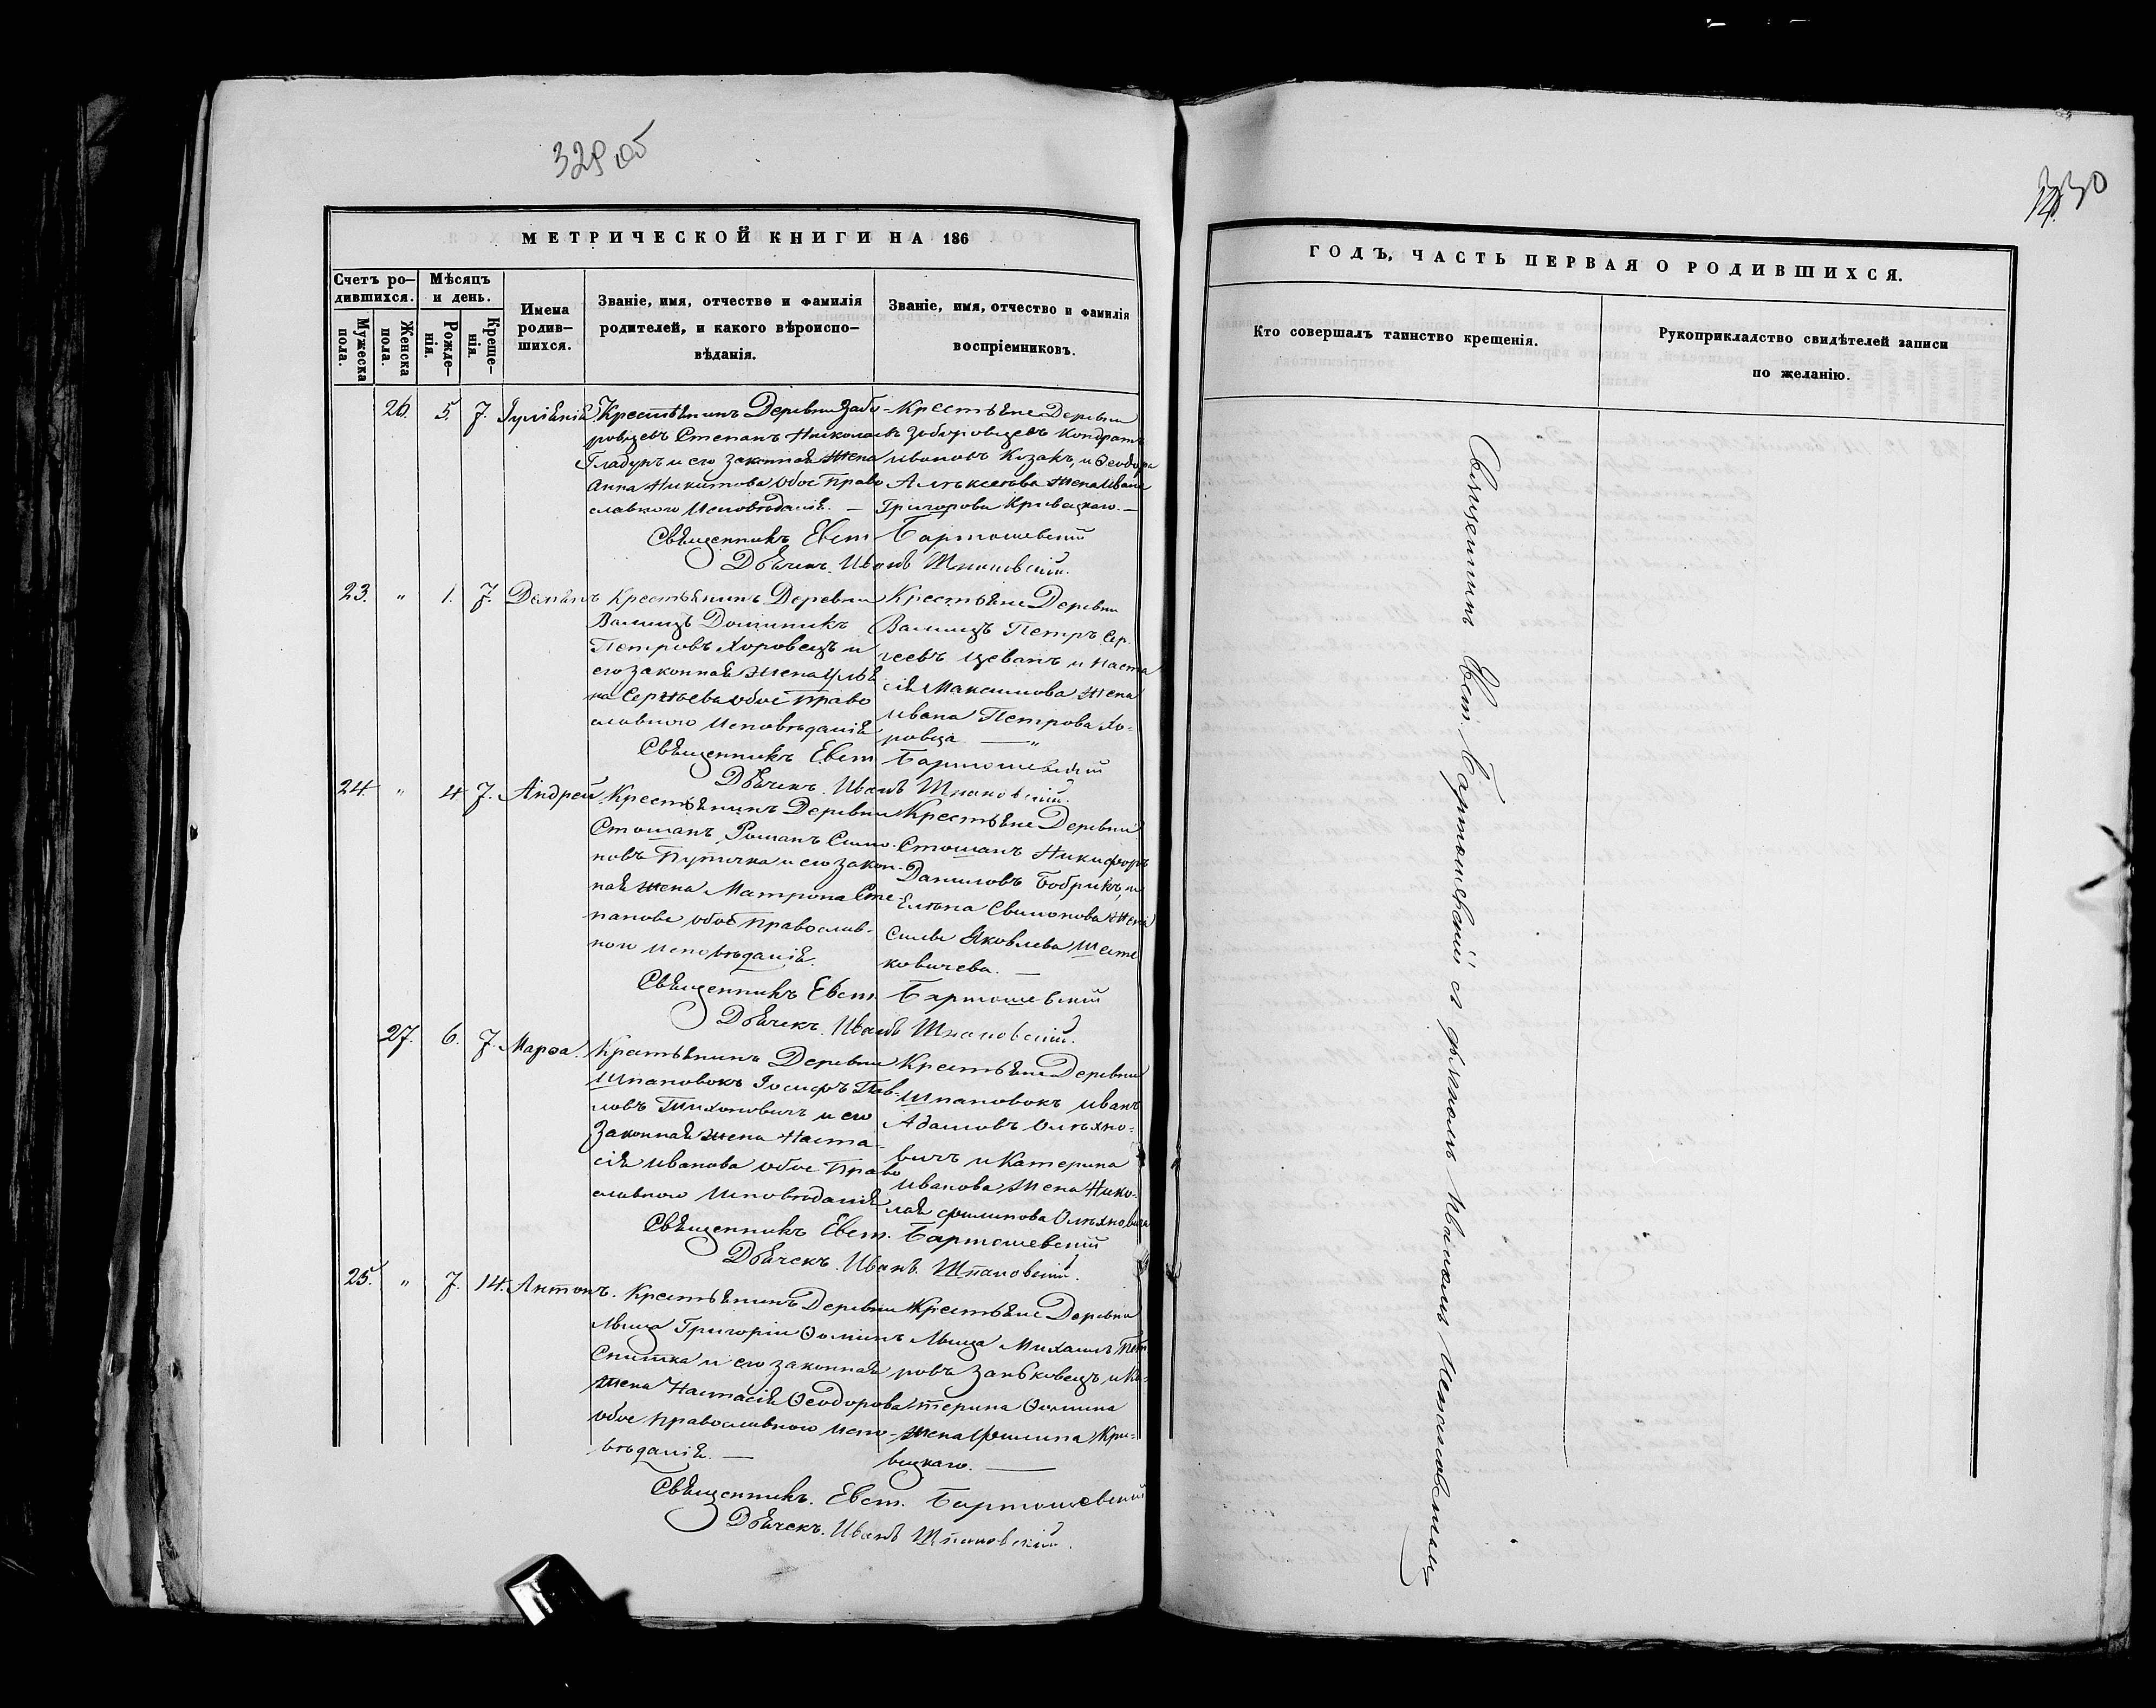 329 об
330
МЕТРИЧЕСКОЙ КНИГИ НА 186
Счетъ ро-
дившихся.
Мужеска
пола.
Женска
пола.
Мѣсяцъ
и день.
Рожде-
нія.
Креще-
нія.
Имена
родив-
шихся.
Званіе, имя, отчество и фамилія
родителей, и какого вѣроиспо-
вѣданія.
Званіе, имя, отчество и фамилія
воспріемниковъ.
26. 5. 7. Іуліанія
Крестьянинъ Деревни Забо-
ровцевъ Степанъ Николаевъ
Гладунъ и его законная жена
Анна Никитова обое Право
славного Исповѣданія. —
Крестьяне Деревни
Забороввцевъ Кондратъ
Ивановъ Козакъ, и Ѳеодора
Алексѣева жена Ивана
Григорова Кривецкаго. —
Священникъ Евст. Бартошевскій
Дьячекъ. Иванъ Шпановскій.
23. " 1. 7. Демьянъ
Крестьянинъ Деревни
Валищъ Доминикъ
Петровъ Хоровецъ и
его законная жена Улья
на Сергѣева обое Право
славного Исповѣданія
Крестьяне Деревни
Валищъ Петръ Сер-
гѣевъ Цеванъ и Наста
сія Максимова жена
Ивана Петрова Хо-
ровца — "
Священникъ Евст. Бартошевскій
Дьячекъ. Иванъ Шпановскій.
24. " 4 7. Андрей
Крестьянинъ Деревни
Стошанъ, Романъ Симо-
новъ Путичка и его закон-
ная жена Матрона Сте-
панова обое Православ-
ного Исповѣданія.
Крестьяне Деревни
Стошанъ Никифоръ
Даниловъ Бобрикъ, и
Елена Свимонова жена
Силы Яковлева Шеле
ковичева. —
Священникъ Евст. Бартошевскій
Дьячекъ. Иванъ Шпановскій.
27. 6. 7. Марѳа.
Крестьянинъ Деревни
Шпановокъ Іосифъ Пав-
ловъ Тихоновичъ и его
Законная жена Наста-
сія Иванова обое Право
славного Исповѣданія
Крестьяне Деревни
Шпановокъ Иванъ
Адамовъ Олѣхно-
вичъ и Катерина
Иванова жена Нико-
лая Филипова Олѣхновича
Священникъ Евст. Бартошевскій
Дьячекъ. Иванъ. Шпановскій.
25. " 7. 14. Антонъ.
Крестьянинъ Деревни
Мыща Григорій Ѳоминъ
Спитка и его законная
жена Настасія Ѳеодорова
обое православного Испо-
вѣданія. —
Крестьяне Деревни
Мыща Михаилъ Пет
ровъ Заньковецъ и Ка-
терина Ѳомина
жена Филипа Кри-
вицкаго. —
Священникъ. Евст. Бартошевскій
Дьячекъ. Иванъ Шпановскій.
ГОДЪ, ЧАСТЬ ПЕРВАЯ О РОДИВШИХСЯ.
Кто совершалъ таинство крещенія.
Рукоприкладство свидѣтелей записи
по желанію.
Священникъ Евст. Бартошевскій съ дьячкомъ Иваномъ Шпановскимъ